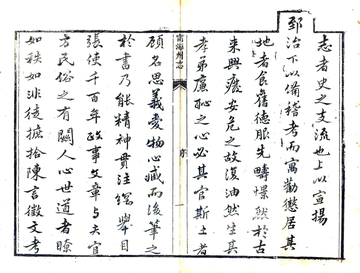 志者史之支流也上以宣揚
郅治下以備稽考而寓勸懲居其
地者食舊德服先疇憬然於古
來興廢安危之故復油然生其
孝弟廉恥之心必其官斯土者
甯海州志 序 一
顧名思義愛物心臧而後筆之
於書乃能精神貫注綱舉目
張使千百年政事文章與夫官
方民俗之有關人心世道者瞭
如秩如非徒摭拾陳言徵文考